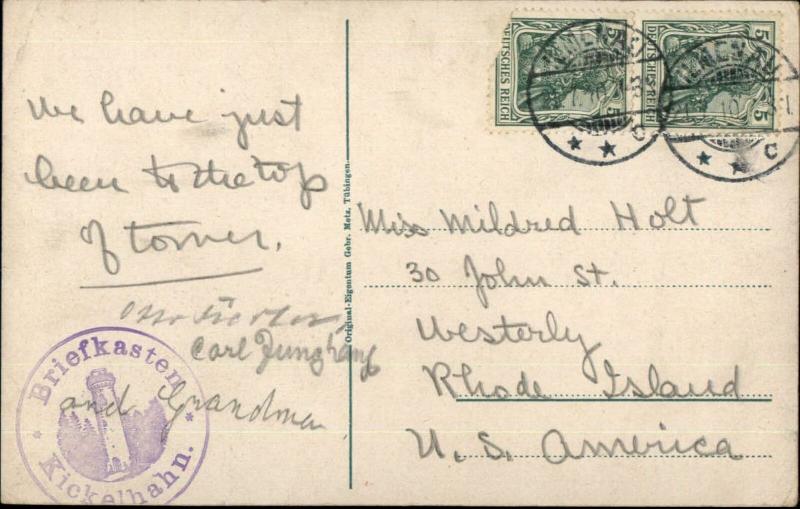 we have just
been to the top
of tower.
Carl Junghans
and Grandma
Briefkasten
Kickelhahn.
Original-Eigentum Gebr. Metz, Tübingen.
DEUTSCHES REICH
5
DEUTSCHES REICH
5
5
ILMENAU
ILMENAU
c
Miss Mildred Holt
30 John St.
Westerly
Rhode Island
U. S. America